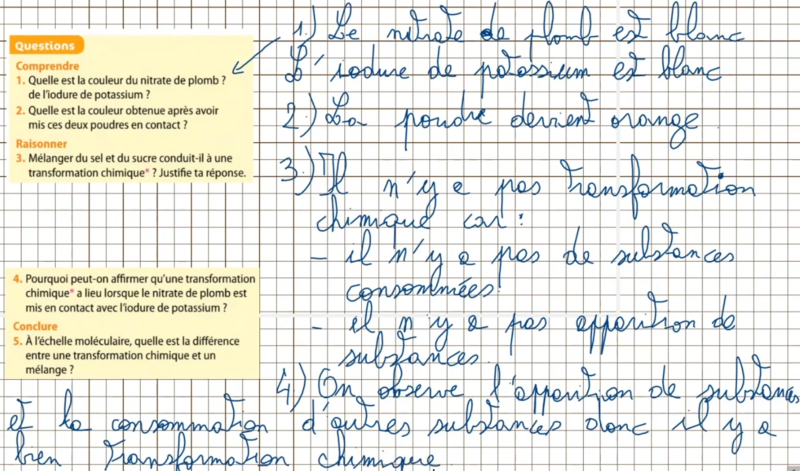 Questions
Comprendre
1. Quelle est la couleur du nitrate de plomb ?
de l'iodure de potassium ?
2. Quelle est la couleur obtenue après avoir
mis ces deux poudres en contact ?
Raisonner
3. Mélanger du sel et du sucre conduit-il à une
transformation chimique* ? Justifie ta réponse.
4. Pourquoi peut-on affirmer qu'une transformation
chimique* a lieu lorsque le nitrate de plomb est
mis en contact avec l'iodure de potassium ?
Conclure
5. À l'échelle moléculaire, quelle est la différence
entre une transformation chimique et un
mélange ?
1) Le nitrate de plomb est blanc
L'iodure de potassium est blanc
2) La poudre devient orange
3) Il n'y a pas transformation
chimique car :
- il n'y a pas de substances
consommées
- il n'y a pas apparition de
substances.
4) On observe l'apparition de substances
et la consommation d'autres substances donc il y a
bien transformation chimique